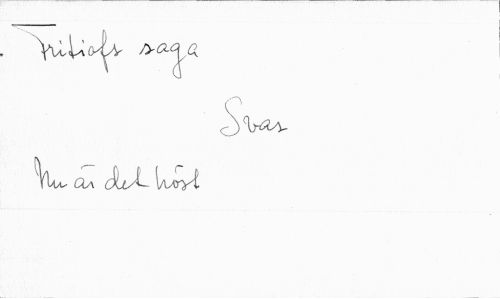 Fritiofs saga
Svar
Nu är det höst